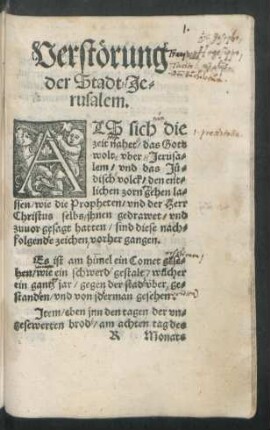 1.
Verstörung
der Stadt Je-
rusalem.
ALS sich die
zeit nahet / das Gott
wolt / vber Jerusa-
lem / vnd das Jü-
disch volck / den ent-
lichen zorn gehen las-
sen / wie die Propheten / vnd der Herr
Christus selbs / jhnen gedrawet / vnd
zuuor gesagt hatten / sind diese nach-
folgende zeichen vorher gangen.
Es ist am himel ein Comet
hen / wie ein schwerd gestalt / welcher
ein gantz jar / gegen der stad vber / ge-
standen / vnd von jderman gesehen.
Item / eben jnn den tagen der vn-
gesewrten brod / am achten tag des
R Monats